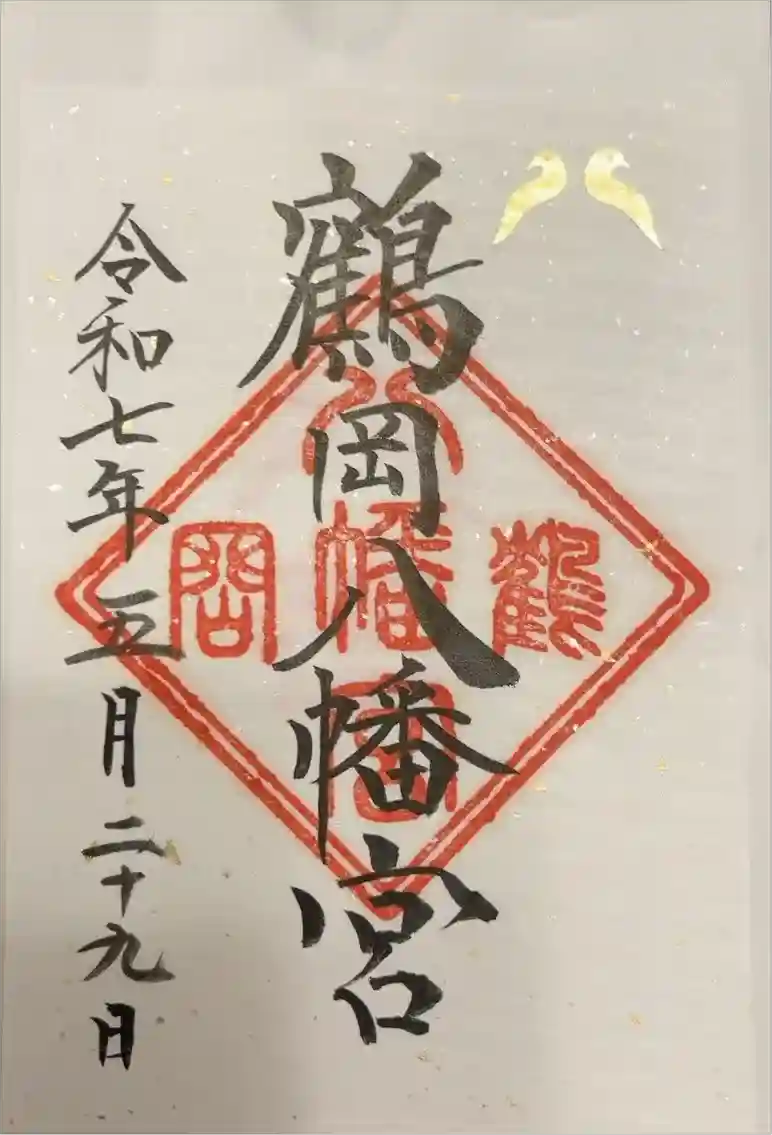 鶴岡八幡宮
令和七年五月二十九日
八
鶴幡岡
宮